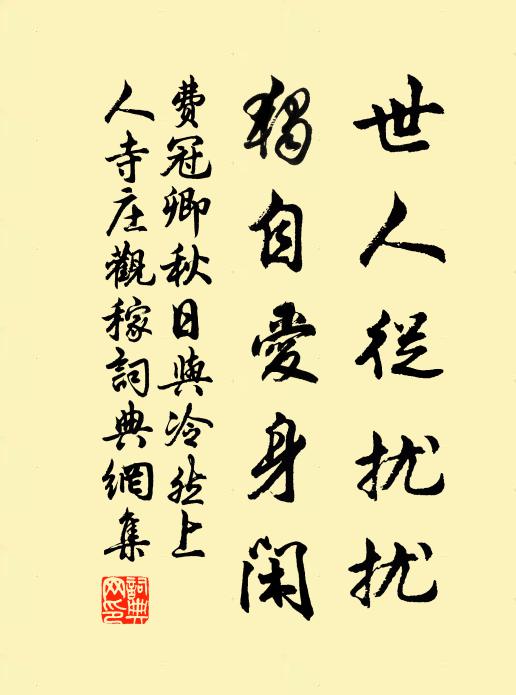 世人從扰扰
獨自愛身闲
費冠卿秋日與冷然上
人寺庄觀稼詞典網集
詞典网印